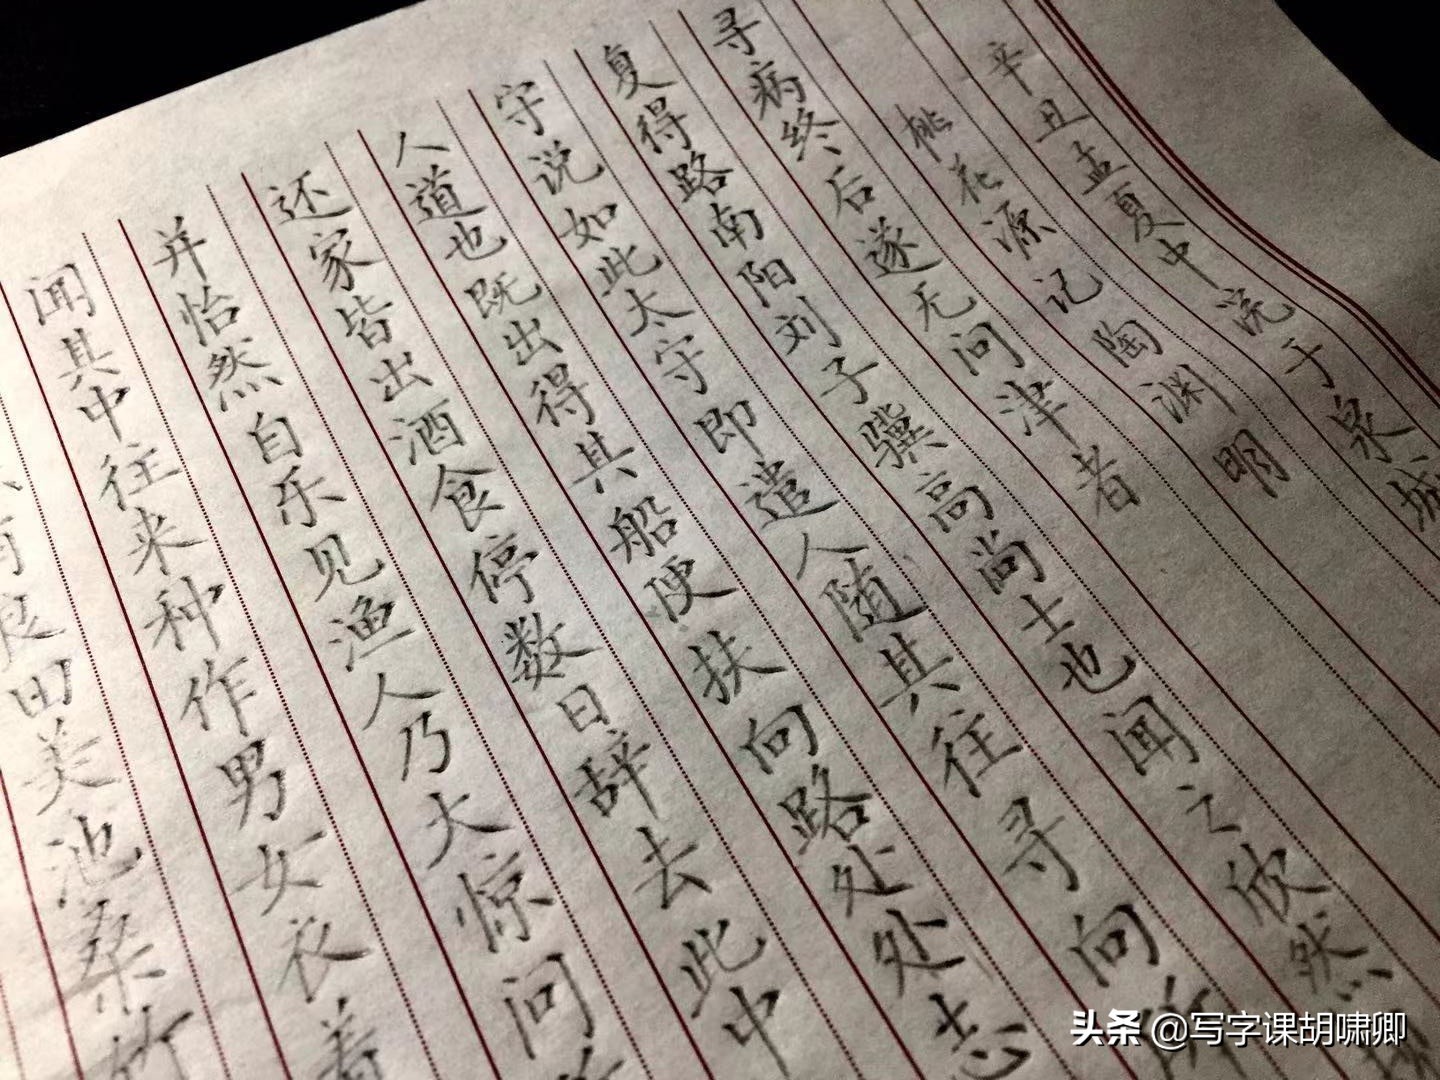 良田美池桑竹
闻其中往来种作男女衣着
并怡然自乐见渔人乃大惊问
还家皆出酒食停数日辞去此中
人道也既出得其船便扶向路处处志
守说如此太守即遣人随其往寻向所
复得路南阳刘子骥高尚士也闻之欣然
寻病终后遂无问津者
桃花源记 陶渊明
辛丑孟夏中浣于泉城
头条 @写字课胡啸卿